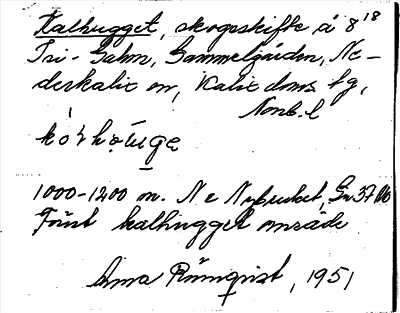 Kalhugget, skogsskifte å 8 18
Tri-Salm, Gammelgården, Ne-
derkalix sn, Kalix doms. tg,
Norrb. l
1000-1200 m. N e Nybruket, Gr. 37
Förut kalhugget område
Rönnqvist, 1951